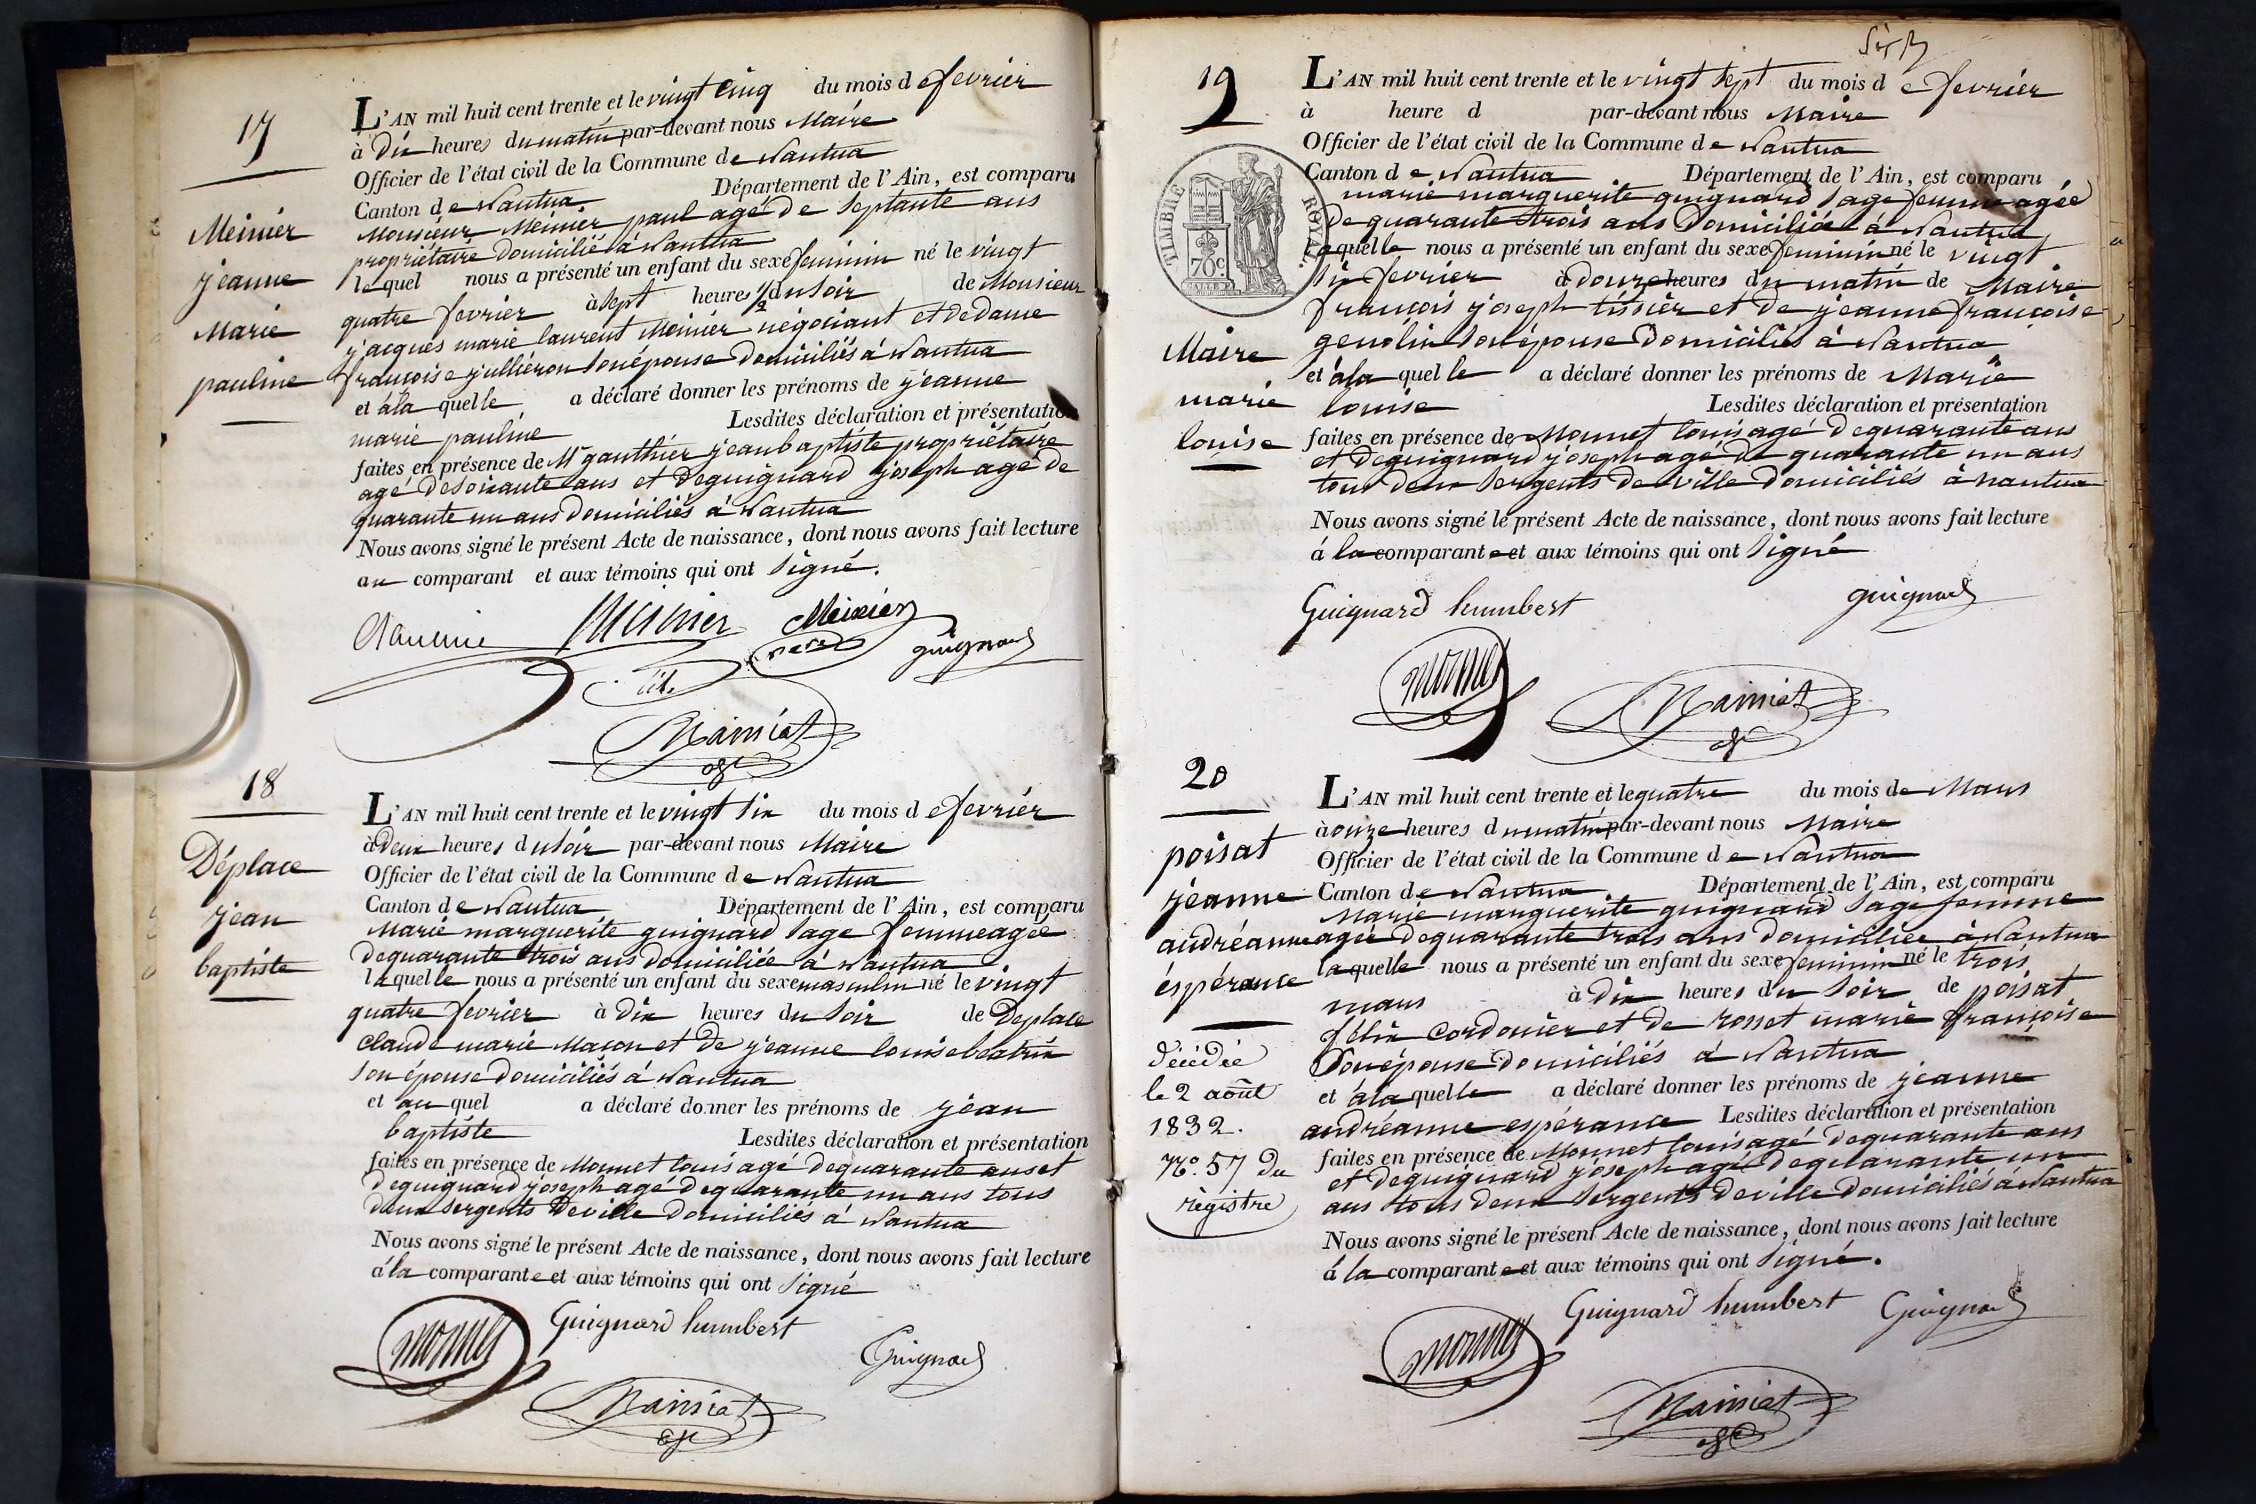 17
Meinier
jeanne
Marie
pauline
L'AN mil huit cent trente et le vingt cinq du mois de fevrier
à dix heures du matin par-devant nous Maire
Officier de l'état civil de la Commune de Nantua
Canton de Nantua Département de l'Ain, est comparu
Monsieur Meinier paul agé de Septante ans
propriétaire domicilié à Nantua
lequel nous a présenté un enfant du sexe feminin né le vingt
quatre fevrier à sept heures 1/2 du Soir de Monsieur
jacques marie laurent Meinier négociant et de dame
françoise jullieron Son épouse domiciliés à Nantua
et à la quelle a déclaré donner les prénoms de jeanne
marie pauline Lesdites déclaration et présentation
faites en présence de Mr gauthier jean baptiste propriétaire
agé de Soixante ans et de guignard joseph agé de
quarante un ans domiciliés à Nantua
Nous avons signé le présent Acte de naissance, dont nous avons fait lecture
au comparant et aux témoins qui ont Signé.
Meinier Meinier
pere guignard
fils
18
Déplace
jean
baptiste
L'AN mil huit cent trente et le vingt Six du mois de fevrier
à deux heures du Soir par-devant nous Maire
Officier de l'état civil de la Commune de Nantua
Canton de Nantua Département de l'Ain, est comparu
Marie marguerite guignard Sage femme agée
de quarante trois ans domiciliée à Nantua
laquelle nous a présenté un enfant du sexe masculin né le vingt
quatre fevrier à dix heures du Soir de Deplace
claude marie Maçon et de jeanne louise beatrix
Son épouse domiciliés à Nantua
et au quel a déclaré donner les prénoms de jean
baptiste Lesdites déclaration et présentation
faites en présence de Monnet louis agé de quarante ans et
de guignard joseph agé de quarante un ans tous
deux Sergents de ville domiciliés à Nantua
Nous avons signé le présent Acte de naissance, dont nous avons fait lecture
à la comparante et aux témoins qui ont Signé
Guignard humbert
monnet Guignard
19
Maire
marie
louise
TIMBRE ROYAL
70c
L'AN mil huit cent trente et le vingt Sept du mois de fevrier
à heure d par-devant nous Maire
Officier de l'état civil de la Commune de Nantua
Canton de Nantua Département de l'Ain, est comparu
marie marguerite guignard Sage femme agée
de quarante trois ans Domiciliée à Nantua
laquelle nous a présenté un enfant du sexe feminin né le vingt
Six fevrier à douze heures du matin de Maire
françois joseph tissier et de jeanne françoise
genolin Son épouse Domiciliés à Nantua
et à la quelle a déclaré donner les prénoms de Marie
louise Lesdites déclaration et présentation
faites en présence de Monnet louis agé de quarante ans
et de guignard joseph agé de quarante un ans
tous deux Sergents de ville domiciliés à nantua
Nous avons signé le présent Acte de naissance, dont nous avons fait lecture
à la comparante et aux témoins qui ont Signé
Guignard humbert guignard
monnet
20
poisat
jeanne
andréanne
éspérance
décédée
le 2 août
1832.
No. 57 du
régistre
L'AN mil huit cent trente et le quatre du mois de Mars
à onze heures du matin par-devant nous Maire
Officier de l'état civil de la Commune de Nantua
Canton de Nantua Département de l'Ain, est comparu
Marie marguerite guignard Sage femme
agée de quarante trois ans domiciliée à Nantua
laquelle nous a présenté un enfant du sexe feminin né le trois
mars à dix heures du Soir de poisat
félix cordonier et de rosset marie françoise
Son épouse domiciliés à Nantua
et à la quelle a déclaré donner les prénoms de jeanne
andréanne espérance Lesdites déclaration et présentation
faites en présence de Monnet louis agé de quarante ans
et de guignard joseph agé de quarante un
ans tous deux Sergents de ville domiciliés à Nantua
Nous avons signé le présent Acte de naissance, dont nous avons fait lecture
à la comparante et aux témoins qui ont Signé.
Guignard humbert Guignard
monnet